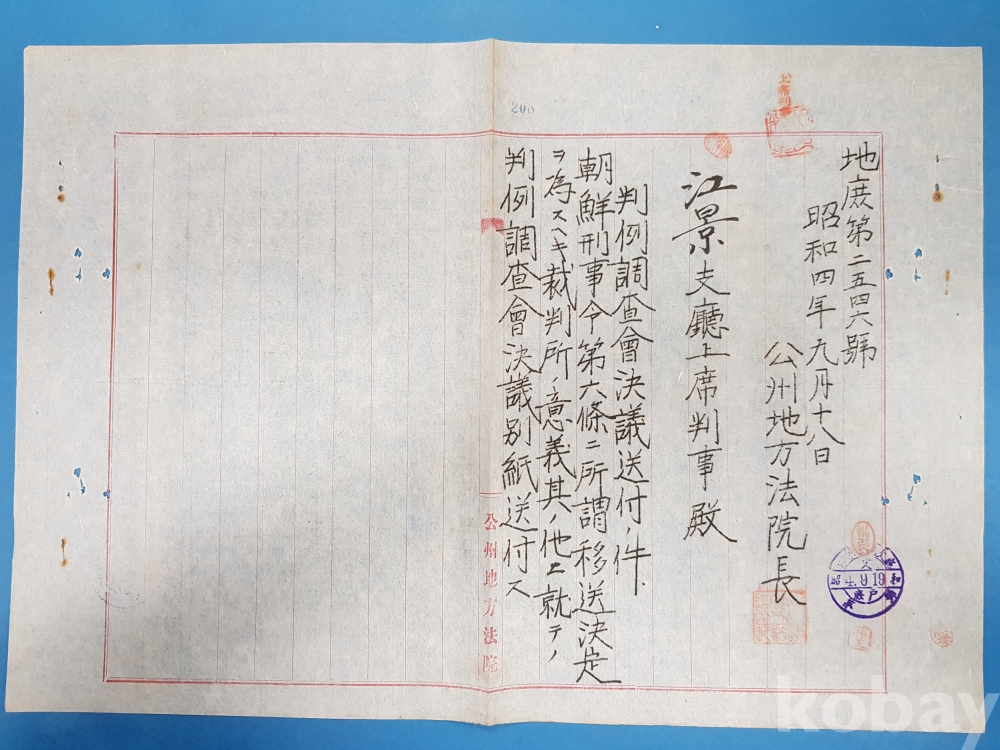 地庶第二五四六號
昭和四年九月十八日
公州地方法院長
江景支廳上席判事殿
判例調查會決議送付ノ件
朝鮮刑事令第六條ニ所謂移送決定
ヲ為スヘキ裁判所ノ意義其ノ他ニ就テノ
判例調查會決議別紙送付ス
公州地方法院
上席判事
206
昭 4.9.19
kobay